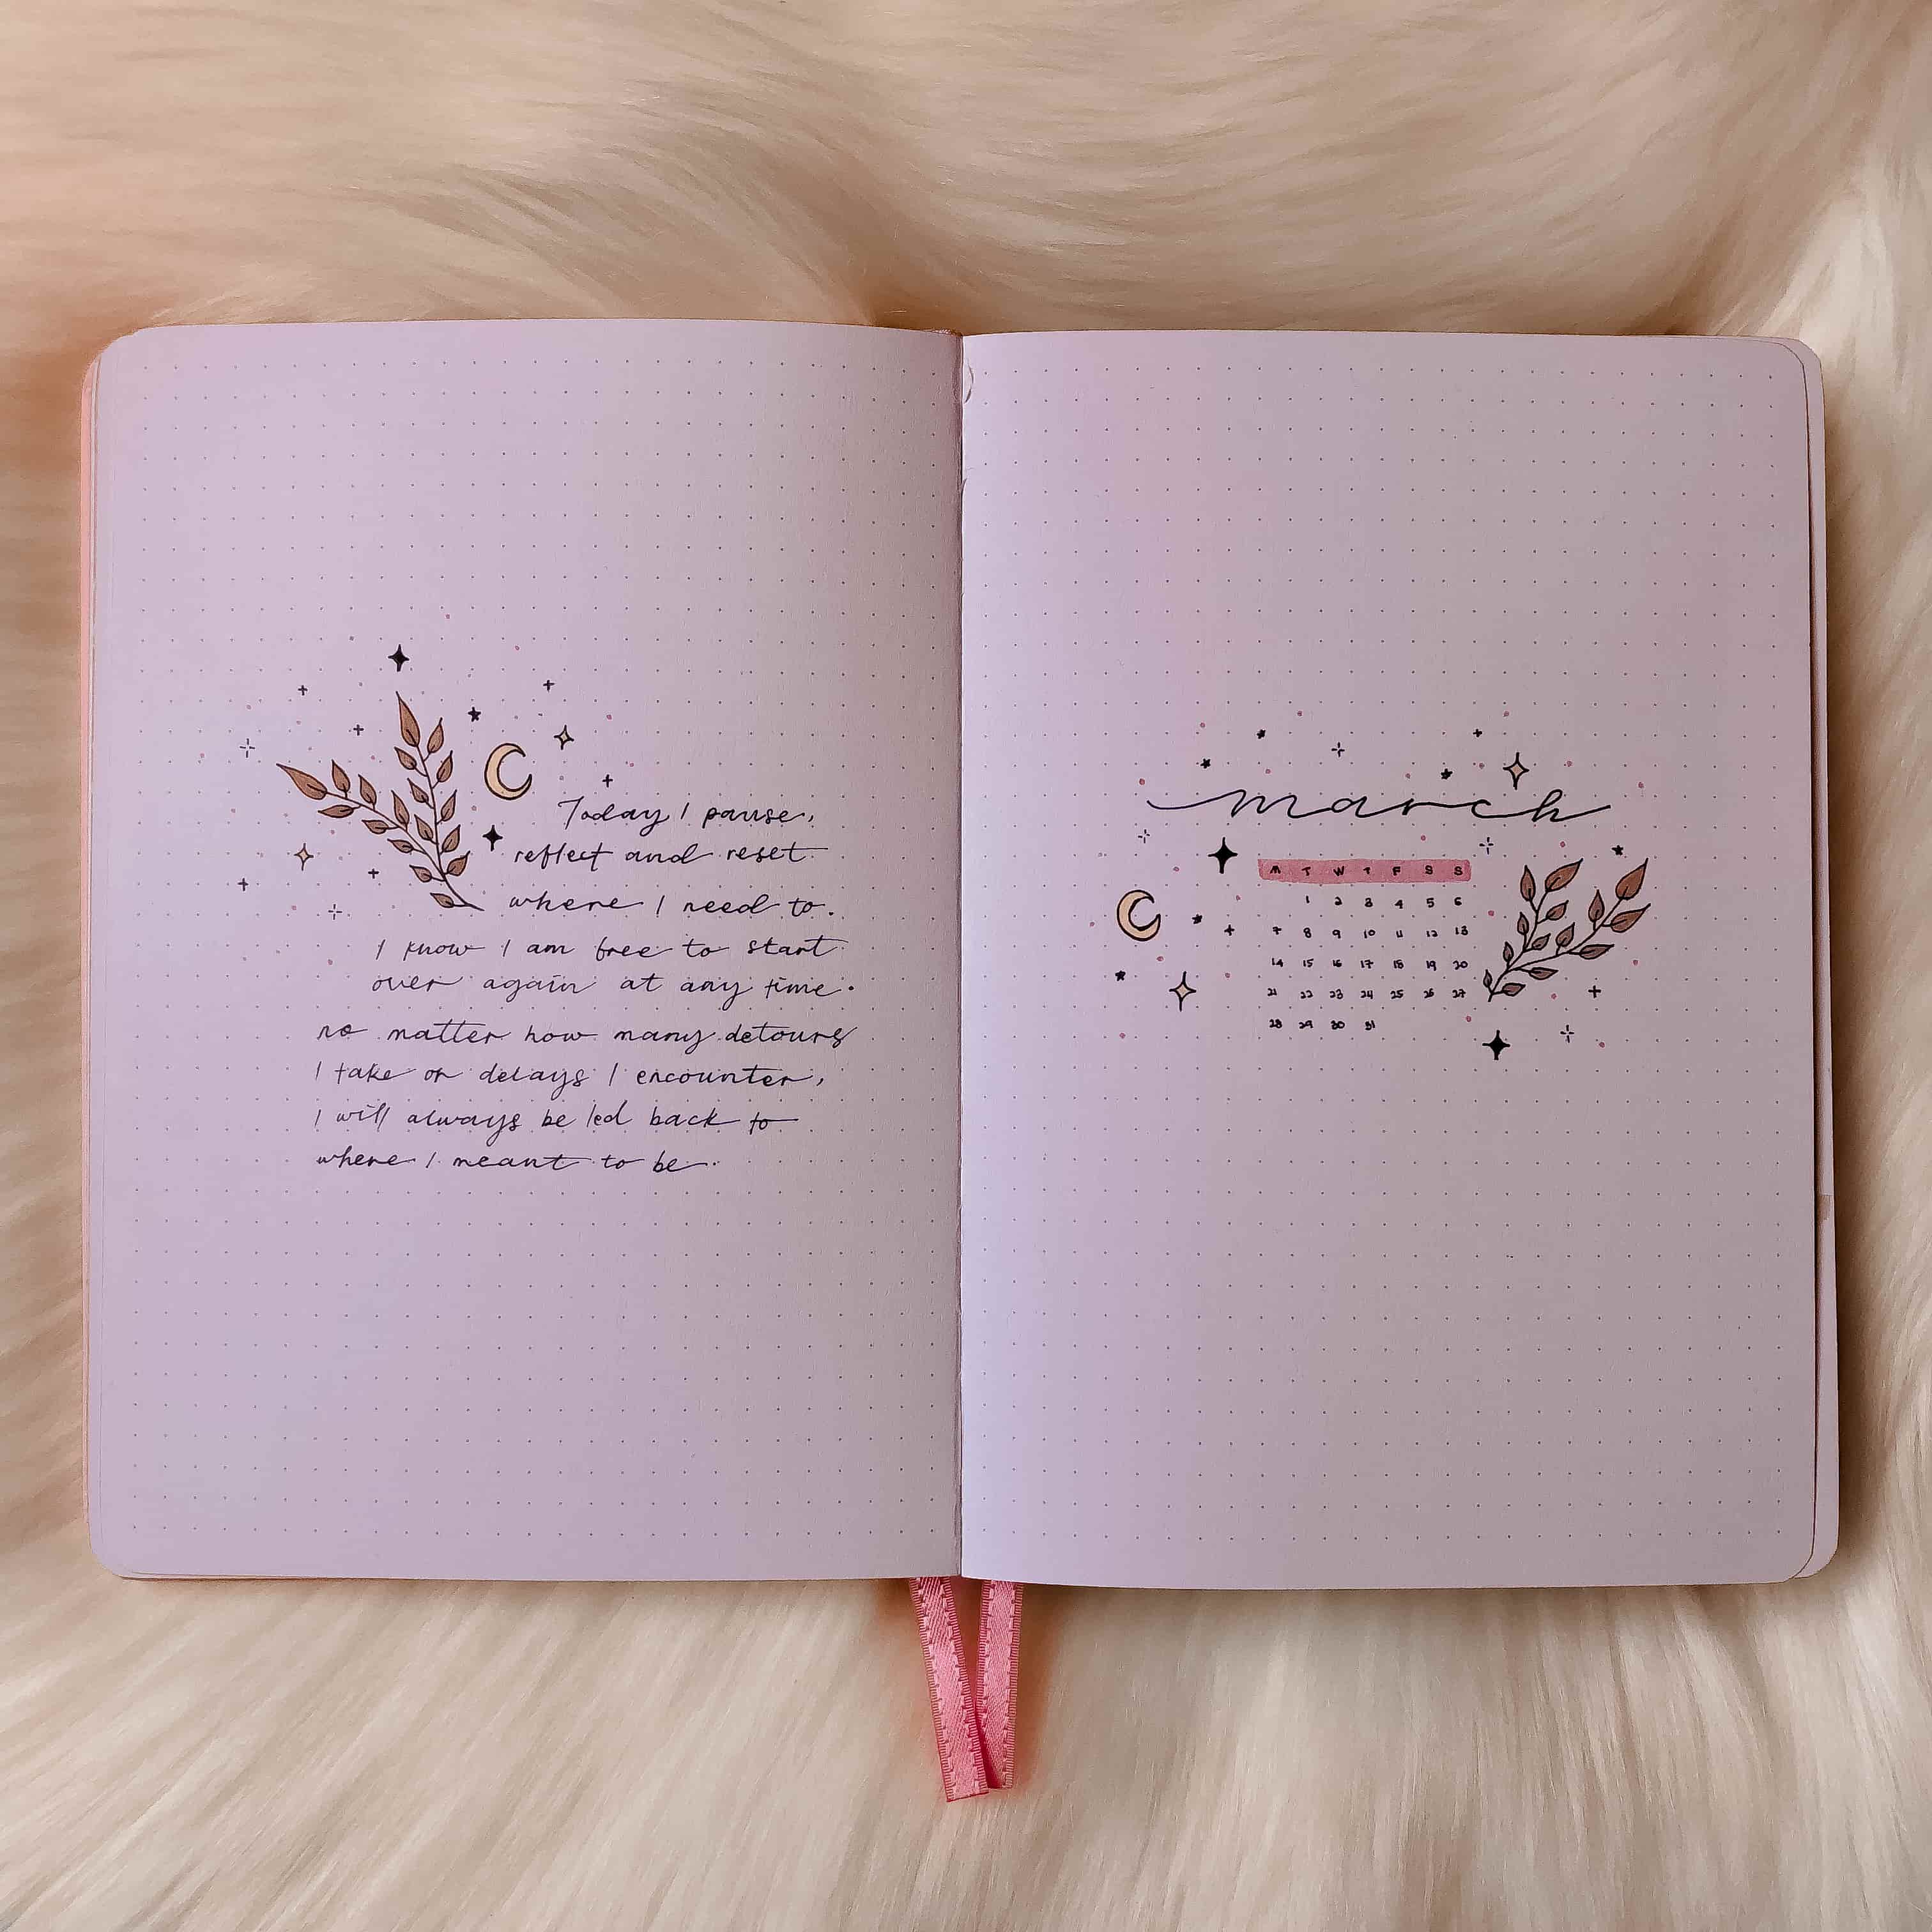 Today I pause,
reflect and reset
where I need to.
I know I am free to start
over again at any time.
no matter how many detours
I take or delays I encounter,
I will always be led back to
where I meant to be.
march
M T W T F S S
1 2 3 4 5 6
7 8 9 10 11 12 13
14 15 16 17 18 19 20
21 22 23 24 25 26 27
28 29 30 31